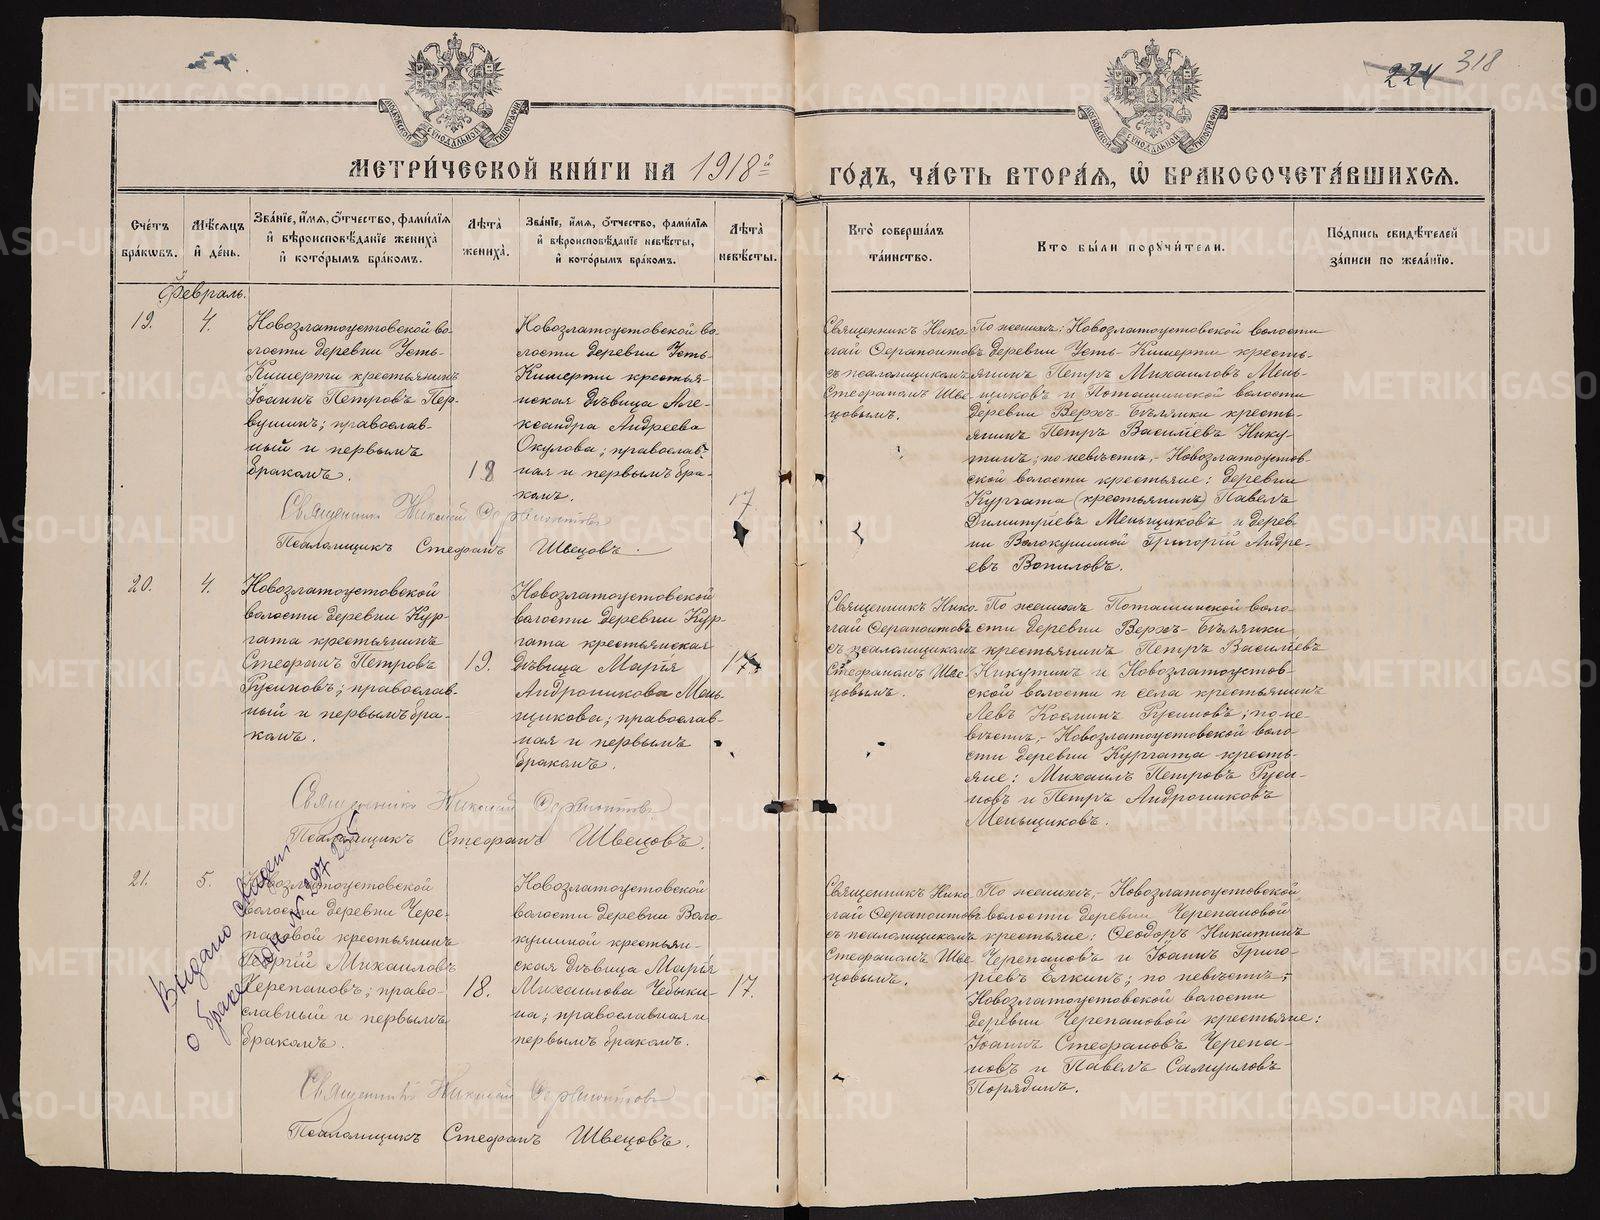 224 318
МОСКОВСКОЙ СѴНОДАЛЬНОЙ ТИПОГРАФІИ
МОСКОВСКОЙ СѴНОДАЛЬНОЙ ТИПОГРАФІИ
МЕТРИ́ЧЕСКОЙ КНИ́ГИ НА 1918й ГО́ДЪ, ЧА́СТЬ ВТОРА́Я, Ѡ҆ БРАКОСОЧЕТА́ВШИХСЯ.
Сче́тъ бра́кѡвъ.
Мѣ́сяцъ и҆ де́нь.
Зва́нїе, и҆́мя, ѻ҆́тчество, фами́лїя и҆ вѣроисповѣ́данїе жениха̀ и҆ кото́рымъ бра́комъ.
Лѣ́та̀ жениха̀.
Зва́нїе, и҆́мя, ѻ҆́тчество, фами́лїя и҆ вѣроисповѣ́данїе невѣ́сты, и҆ кото́рымъ бра́комъ.
Лѣ́та̀ невѣ́сты.
Кто̀ соверша́лъ та́инство.
Кто̀ бы́ли порꙋчи́тели.
По́дпись свидѣ́телей за́писи по жела́нїю.
Февраль.
19.
4.
Новозлатоустовской во-
лости деревни Усть-
Кишерти крестьянинъ
Іоаннъ Петровъ Пер-
вушинъ; православ-
ный и первымъ
бракомъ.
18
Новозлатоустовской во-
лости деревни Усть-
Кишерти крестья-
нская дѣвица Але-
ксандра Андреева
Окулова; православ-
ная и первымъ бра-
комъ.
17
Священникъ Нико-
лай Серапонтовъ
съ псаломщикомъ
Стефаномъ Шве-
цовымъ.
По женихѣ: Новозлатоустовской волости
деревни Усть-Кишерти кресть-
янинъ Петръ Михаиловъ Мень-
щиковъ и Поташинской волости
деревни Верхъ-Бѣляики кресть-
янинъ Петръ Василіевъ Нику-
тинъ; по невѣстѣ,- Новозлатоустов-
ской волости крестьяне: деревни
Кургата (крестьянинъ) Павелъ
Димитріевъ Меньщиковъ и дерев-
ни Волокушиной Григорій Андре-
евъ Вопиловъ.
Священникъ Николай Серапонтовъ
Псаломщикъ Стефанъ Швецовъ.
20.
4.
Новозлатоустовской
волости деревни Кур-
гата крестьянинъ
Стефанъ Петровъ
Русиновъ; православ-
ный и первымъ бра-
комъ.
19.
Новозлатоустовской
волости деревни Кур-
гата крестьянская
дѣвица Марія
Андроникова Мень-
щикова; православ-
ная и первымъ
бракомъ.
17.
Священникъ Нико-
лай Серапонтовъ
съ псаломщикомъ
Стефаномъ Шве-
цовымъ.
По женихѣ Поташинской воло-
сти деревни Верхъ-Бѣляики
крестьянинъ Петръ Василіевъ
Никутинъ и Новозлатоустов-
ской волости и села крестьянинъ
Левъ Косминъ Русиновъ; по не-
вѣстѣ,- Новозлатоустовской воло-
сти деревни Кургата кресть-
яне: Михаилъ Петровъ Руси-
новъ и Петръ Андрониковъ
Меньщиковъ.
Священникъ Николай Серапонтовъ
Псаломщикъ Стефанъ Швецовъ.
21.
5.
Выдано свидет
о браке № 297
Новозлатоустовской
волости деревни Чере-
пановой крестьянинъ
Георгій Михаиловъ
Черепановъ; право-
славный и первымъ
бракомъ.
18.
Новозлатоустовской
волости деревни Воло-
кушиной крестьян-
ская дѣвица Марія
Михаилова Чебыки-
на; православная и
первымъ бракомъ.
17.
Священникъ Нико-
лай Серапонтовъ
съ псаломщикомъ
Стефаномъ Шве-
цовымъ.
По женихѣ,- Новозлатоустовской
волости деревни Черепановой
крестьяне: Ѳеодоръ Никитинъ
Черепановъ и Іоаннъ Григо-
ріевъ Елкинъ; по невѣстѣ,-
Новозлатоустовской волости
деревни Черепановой крестьяне:
Іоаннъ Стефановъ Черепа-
новъ и Павелъ Самуиловъ
Порядинъ.
Священникъ Николай Серапонтовъ
Псаломщикъ Стефанъ Швецовъ.
METRIKI.GASO-URAL.RU